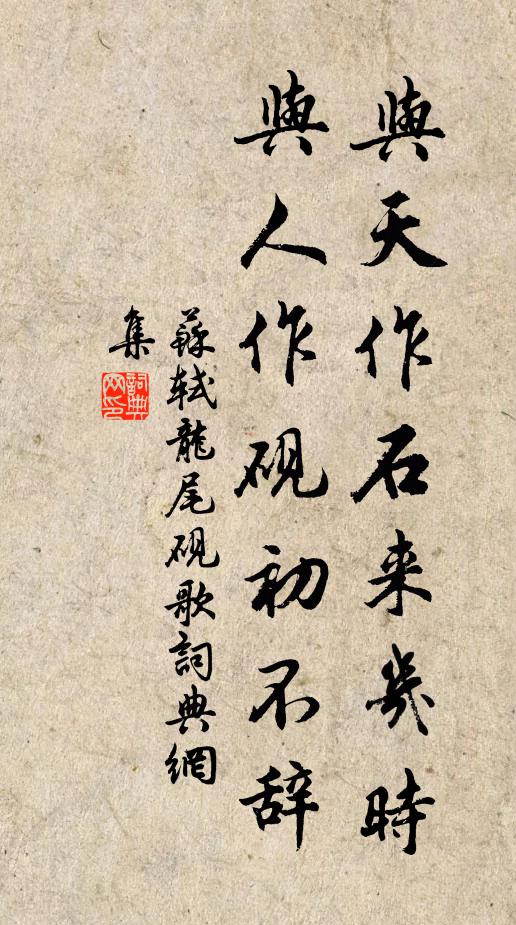 與天作石來幾時
與人作硯初不辭
蘇軾龍尾硯歌詞典網
集
詞典
网印